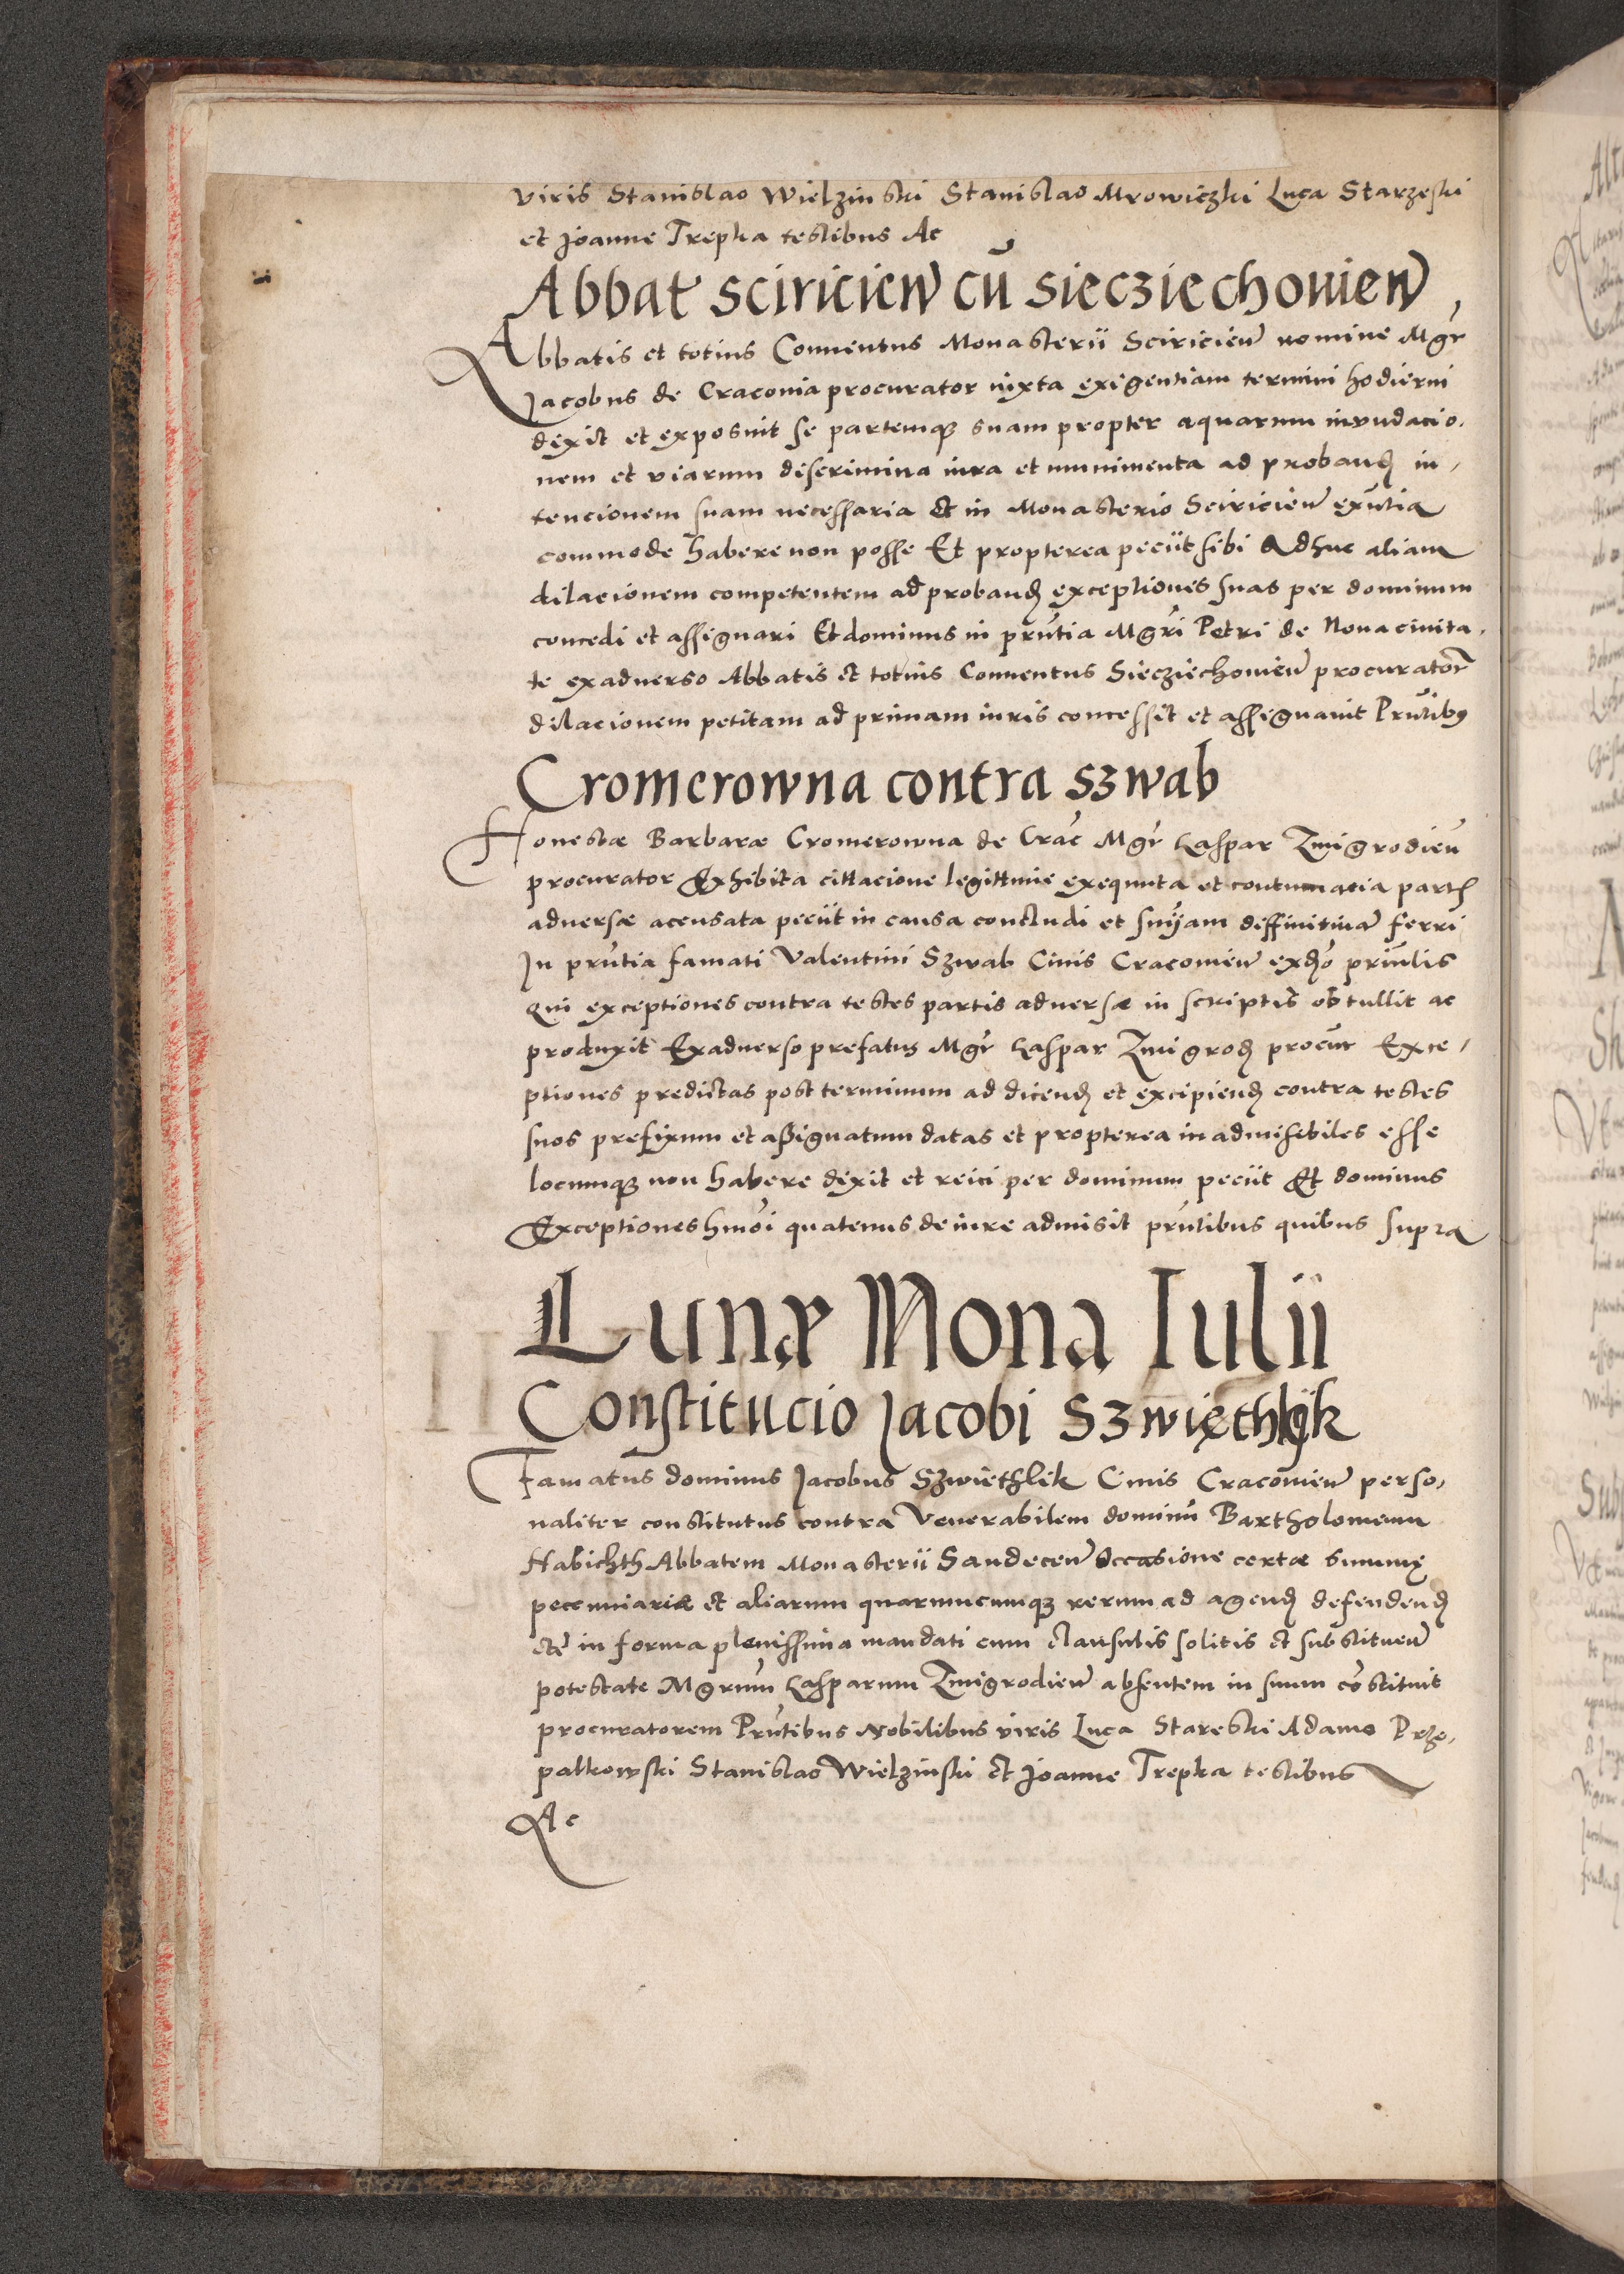 viris Stanislao Wielzinski Stanislao Mrowiczki Luca Starzeski
et Joanne Trepka testibus Ac
Abbat sciricien̄ cū siecziechouien̄
Abbatis et totius Conuentus Monasterii Sciricien̄ nomine Mgr̄
Jacobus de Craconia procurator iuxta exigentiam termini hodierni
dixit et exposuit se partemqȝ suam propter aquarum inundacio,
nem et viarum discrimina iura et munimenta ad proband̄ in,
tencionem suam necessaria et in Monasterio Sciricien̄ exn̄tia
commode habere non posse Et propterea peciit sibi Adhuc aliam
dilacionem competentem ad proband̄ exceptiones suas per dominum
concedi et assignari Et dominus in pn̄tia Mgr̄i Petri de Noua ciuita,
te ex aduerso Abbatis et totius Conuentus Siecziechouien̄ procurator̄
dilacionem petitam ad primam iuris concessit et assignauit Pn̄tibꝰ
Cromerowna contra szwab
Honestæ Barbaræ Cromerowna de Crac̄ Mgr̄ Caspar Zmigrodien̄
procurator Exhibita cittacione legittime exequuta et contumacia part̄
aduersæ acusata peciit in causa concludi et sn̄iam diffinitiuā ferri
In pn̄tia famati Valentini Szwab Ciuis Cracouien̄ exđo prin̄lis
qui exceptiones contra testes partis aduersæ in scriptis obtullit ac
produxit Exaduerso prefatus Mgr̄ Caspar Zmigrod̄ procur̄ Exce,
ptiones predictas post terminum ad dicend̄ et excipiend̄ contra testes
suos prefixum et aßignatum datas et propterea inadmisibiles esse
locumqȝ non habere dixit et reici per dominum peciit Et dominus
Exceptiones hmōi quatenus de iure admisit pn̄tibus quibus supra
Lunæ Nona Iulii
Constitucio Jacobi Szwięthlyk
Famatus dominus Jacobus Szwiethlik Ciuis Cracouien̄ perso,
naliter constitutus contra Venerabilem dominū Bartholomeum
Habichth Abbatem Monasterii Sandecen̄ Occasione certæ summę
peccuniariæ et aliarum quarumcumqȝ rerum ad agend̄ defendend̄
etc̄ in forma plenissima mandati cum clausulis solitis et substituen̄
potestate Mgrūm Casparum Zmigrodien̄ absentem in suum cōstituit
procuratorem Pn̄tibus Nobilibus viris Luca Stareski Adamo Prze,
palkowski Stanislao Wielzinski et Joanne Trepka testibus
Ac